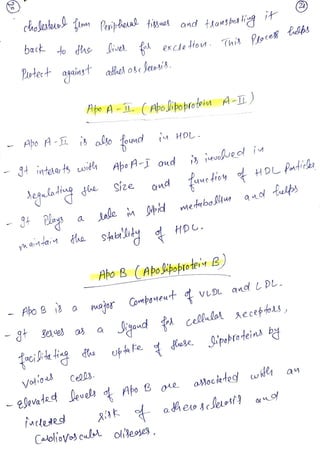 cholesterol from Peripheral tissues and transporting it
back to the liver for excretion. This Process helps
Protect against atherosclerosis.
Apo A-II. (Apolipoprotein A-II)
- Apo A-II is also found in HDL.
- It interacts with Apo A-I and is involved in
regulating the size and function of HDL Particles
- It Plays a role in lipid metabolism and helps
maintain the stability of HDL.
Apo B (Apolipoprotein B)
- Apo B is a major Component of VLDL and LDL.
- It serves as a ligand for cellular receptors,
facilitating the uptake of these lipoproteins by
Various Cells.
- Elevated levels of Apo B are associated with an
increased risk of atherosclerosis and
Cardiovascular diseases.